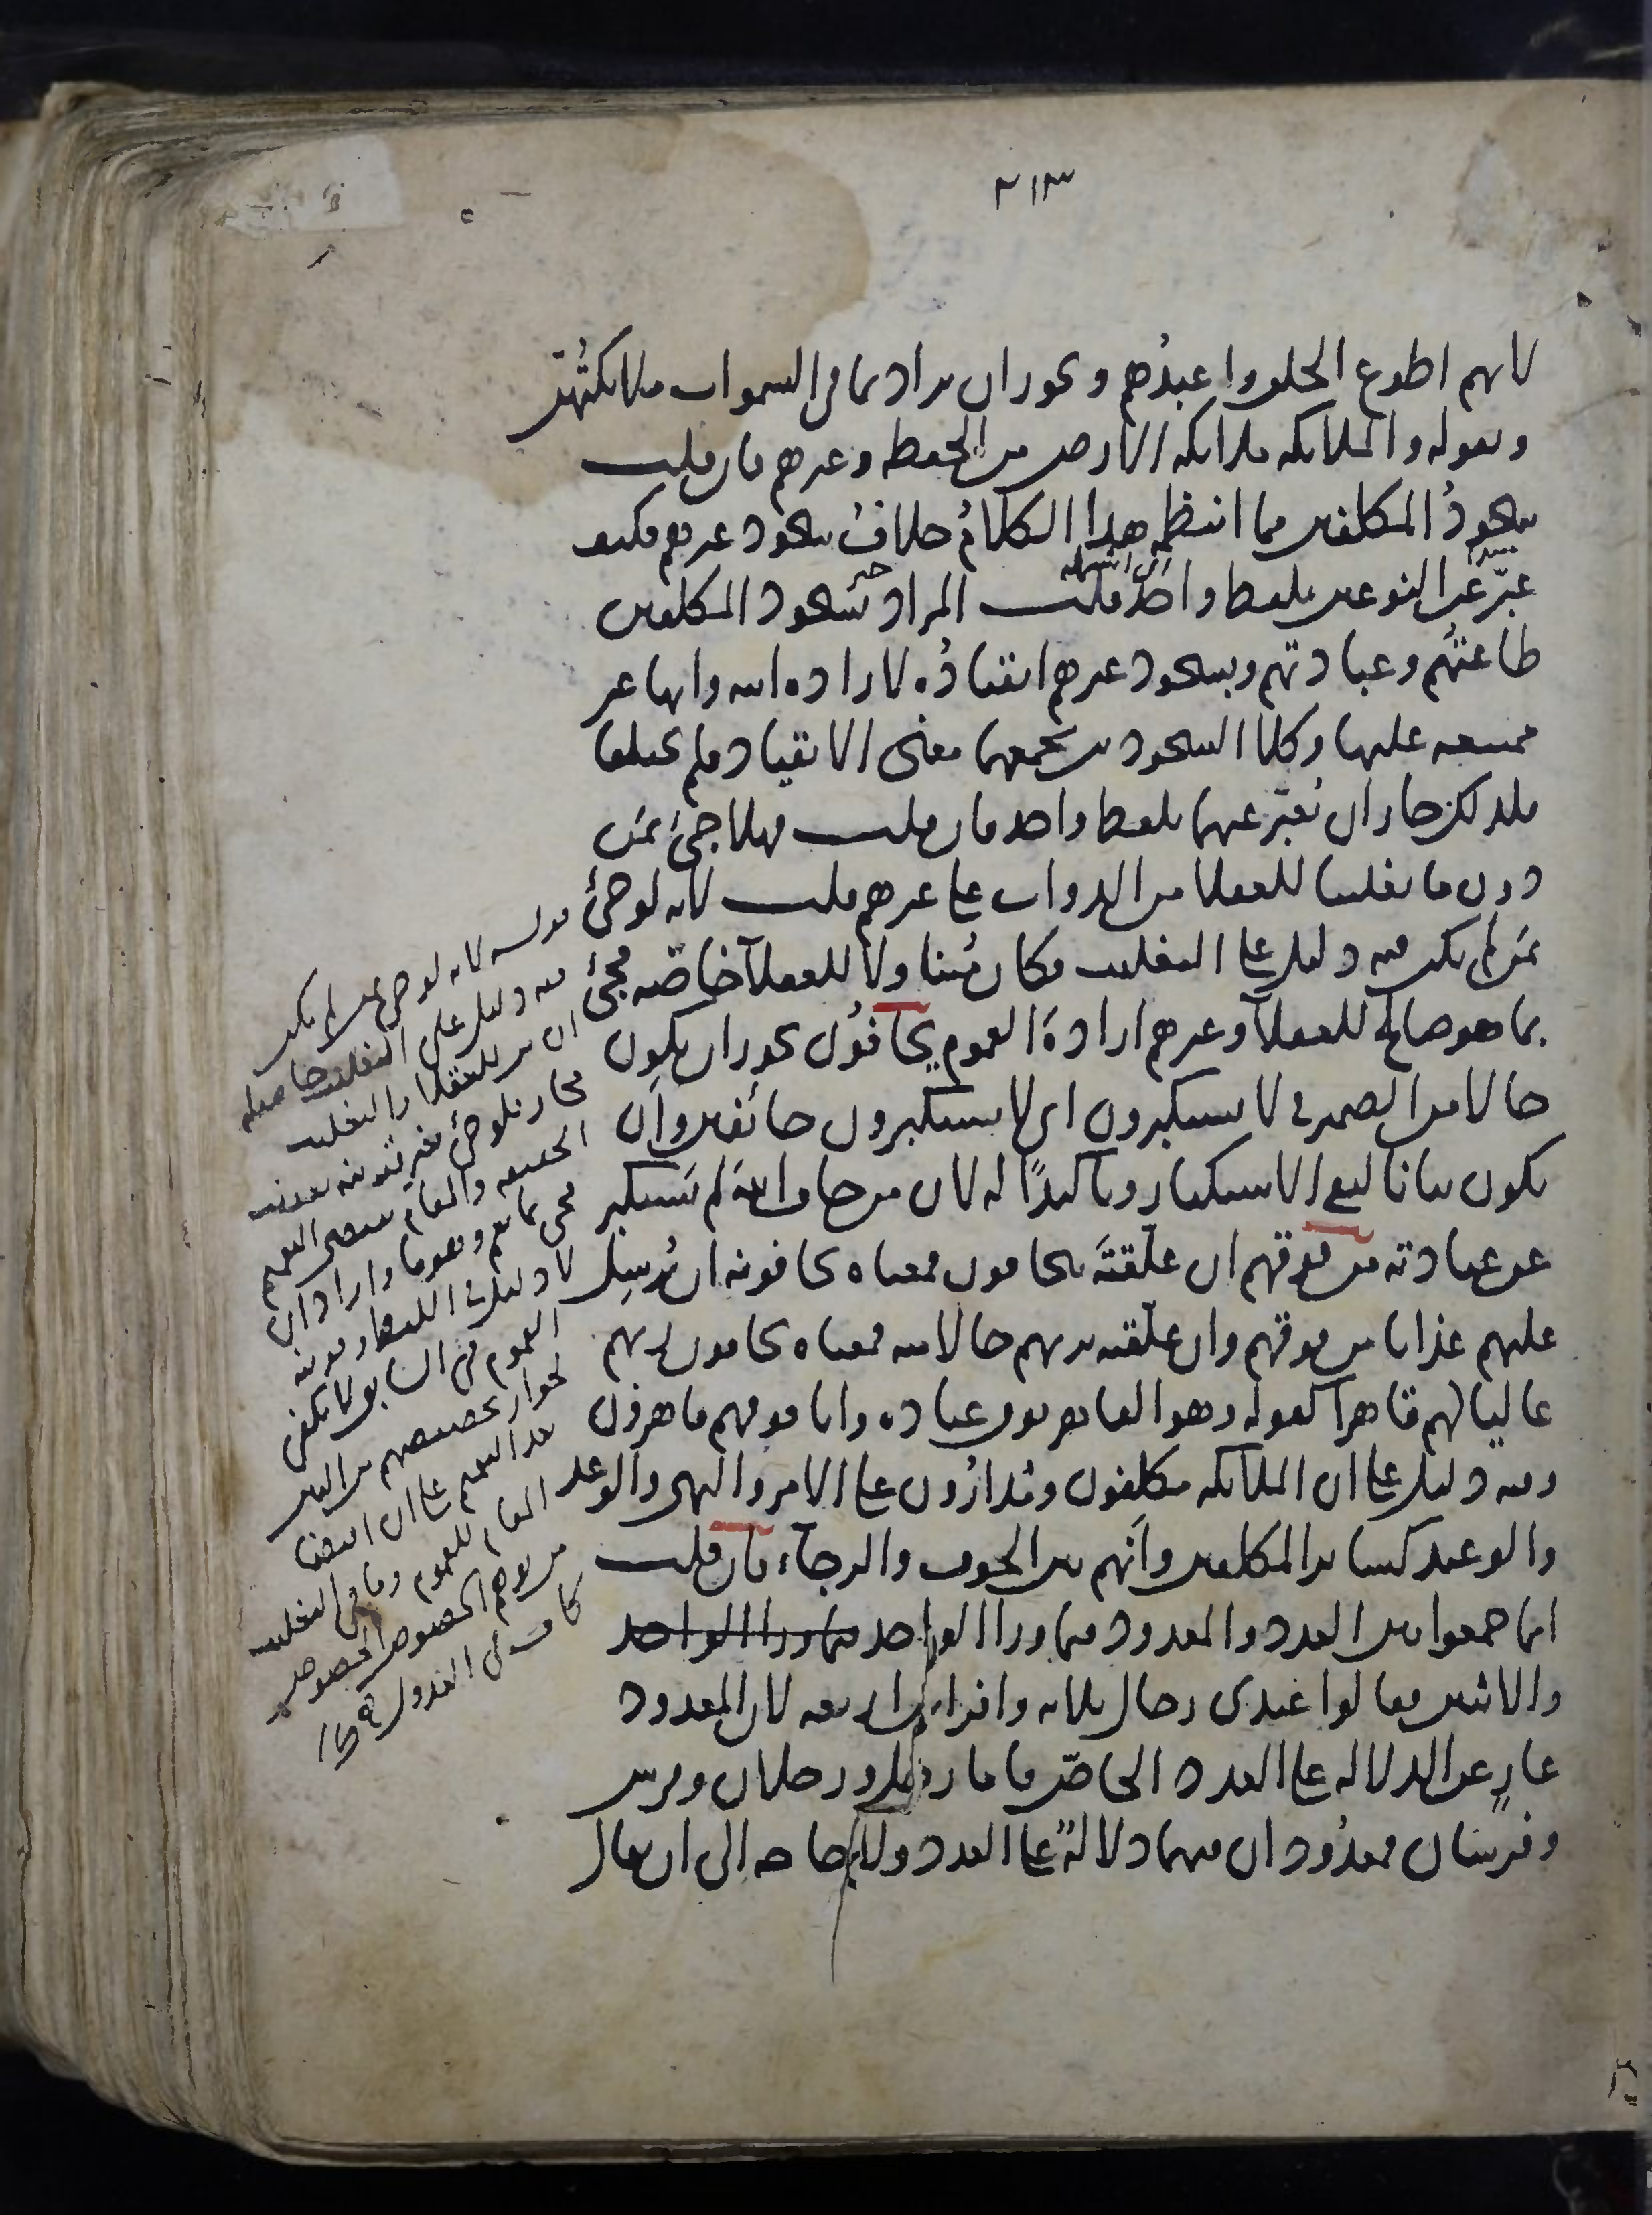 ٢١٣
لانهم اطوع الخلق واعبدُهم ويجوز ان يراد بما في السموات ملائكتُهنّ
وبقوله والملائكة ملائكة الارض من الحفظة وغيرهم فان قلت
سجودُ المكلفين مما انتظمه هذا الكلامُ خلافُ سجود غيرهم فكيف
عبّر عن النوعين بلفظ واحد قلت المراد بسجود المكلفين
طاعتُهم وعبادتهم وبسجود غيرهم انقيادُه لارادة الله وانها غير
ممتنعة عليها وكلا السجودين يجمعهما معنى الانقياد فلم يختلفا
فلذلك جاز ان يُعبّر عنهما بلفظ واحد فان قلت فهلا جيئ بمَن
دون ما تغليبا للعقلا من الدواب على غيرهم قلت لانه لو جيئ
بمَن لم يكن فيه دليل على التغليب فكان متناولا للعقلآ خاصّه فجيئ
بما هو صالح للعقلآ وغيرهم ارادة العموم يخافوُن يجوز ان يكون
حالا من الضمير في لا يستكبرون اي لا يستكبرون خائفين وان
يكون بيانا لنفي الاستكبار وتاكيدًا له لان من خاف اللهَ لم يَستكبر
عن عبادته من فوقهم ان علّقتَه بيخافون فمعناه يخافونه ان يُرسِل
عليهم عذابا من فوقهم وان علّقته بربهم حالا منه فمعناه يخافون ربهم
عاليا لهم قاهرا كقوله وهو القاهر فوق عباده وانا فوقهم قاهرون
وفيه دليل على ان الملآئكه مكلفون ومُدارُون على الامر والنهي والوعد
والوعيد كساير المكلفين وانهم بين الخوف والرجآء فان قلت
انما جمعوا بين العدد والمعدود فيما ورا الواحد فيما ورا الواحد
والاثنين فقالوا عندي رجال ثلاثه وافراس اربعه لان المعدود
عارٍ عن الدلاله على العدد الخاصّ فاما رجل ورجلان وفرس
وفرَسان فمعدُودان فيهما دلالةٌ على العدد ولا حاجه الى ان يقال
قوله لانه لو جيئ بمن لم يكن
فيه دليل على التغليب حاصله
ان من للعقلا والتغليب
مجاز فلو جيئ بغير قرينه تعينت
الحقيقه والمقام يقتضي التعميم
فجيئ بما يعم وهو ما واراد ان
لا دليل في اللفظ وقرينه
العموم في السابق لا تكفي
لجواز تخصيصهم من البين
بعد التعميم على ان اقتضا
المقام للعموم وما في التغليب
من توهم الخصوص
كاف في العدول